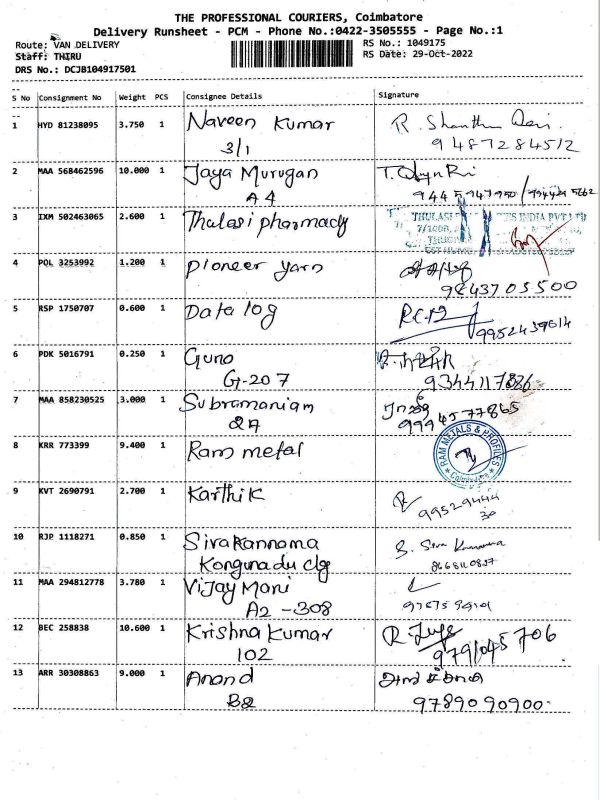 THE PROFESSIONAL COURIERS, Coimbatore
Delivery Runsheet - PCM - Phone No.:0422-3505555 - Page No.:1
Route: VAN DELIVERY
RS No.: 1049175
Staff: THIRU
RS Date: 29-Oct-2022
DRS No.: DCJB104917501
S No Consignment No Weight PCS Consignee Details Signature
1 HYD 81238095 3.750 1 Naveen Kumar R. Shanthi
3/1 9487284512
2 MAA 568462596 10.000 1 Jaya Murugan
A4
3 IXM 502463065 2.600 1 Thulasi pharmacy THULASI INDIA PVT LTD
4 POL 3253992 1.200 1 pioneer yarn
9843703500
5 RSP 1750707 0.600 1 Data log
9952439614
6 PDK 5016791 0.250 1 Guno
G-207 9344117886
7 MAA 858230525 3.000 1 Subramaniam
2A 9994577865
8 KRR 773399 9.400 1 Ram metal RAM METALS & PROFILES
Coimbatore
9 KVT 2690791 2.700 1 Karthik
99529444
30
10 RJP 1118271 0.850 1 Sivakannama S. Siva
Kongunadu clg 8668110837
11 MAA 294812778 3.780 1 Vijay Mani
A2 -308
12 BEC 258838 10.600 1 Krishna Kumar
102 9791045706
13 ARR 30308863 9.000 1 Anand
B2 9789090900